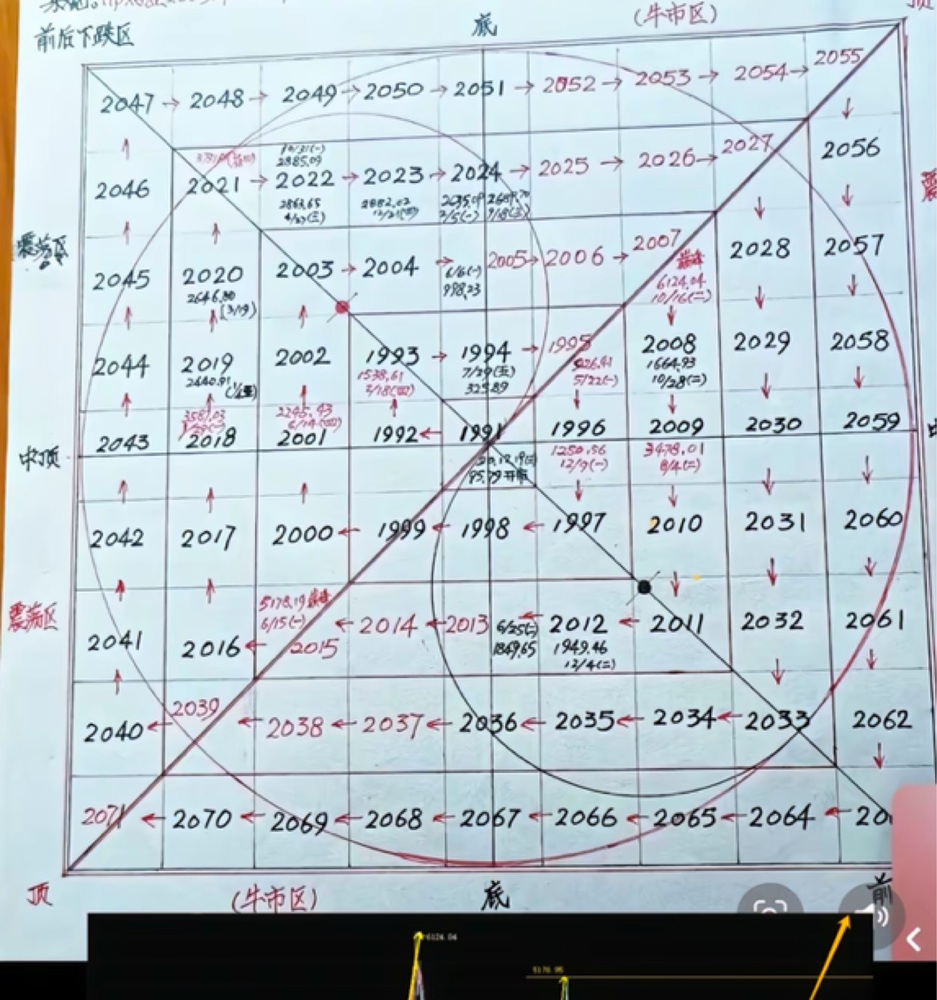 前后下跌区 底 (牛市区) 顶
2047 → 2048 → 2049 → 2050 → 2051 → 2052 → 2053 → 2054 → 2055
10/31(一)
2885.09
2046 2021 → 2022 → 2023 → 2024 → 2025 → 2026 → 2027 2056
2863.65 2882.02 2635.09 2689.70
4/27(三) 12/21(四) 2/5(一) 9/18(三)
震荡区
2045 2020 2003 → 2004 → 2005 → 2006 → 2007 2028 2057
2646.80 (3/19) 6/6(一) 998.23 6124.04 10/16(二)
2044 2019 2002 1993 → 1994 → 1995 2008 2029 2058
2440.91 1/4(五) 1558.61 7/29(五) 325.89 926.41 5/22(一) 1664.93 10/28(二)
3587.03 2245.43 6/14(四)
中顶 2043 2018 2001 1992 ← 1991 1996 2009 2030 2059 中
95.79 开盘 1250.56 12/9(一) 3478.01 8/4(二)
2042 2017 2000 ← 1999 ← 1998 ← 1997 2010 2031 2060
震荡区
5178.19
6/15(一)
2041 2016 ← 2015 ← 2014 ← 2013 ← 2012 ← 2011 2032 2061
6/25(二) 1849.65 1949.46 12/4(二)
2040 ← 2039 ← 2038 ← 2037 ← 2036 ← 2035 ← 2034 ← 2033 2062
2071 ← 2070 ← 2069 ← 2068 ← 2067 ← 2066 ← 2065 ← 2064 ← 20
顶 (牛市区) 底 前
6124.04
5178.95